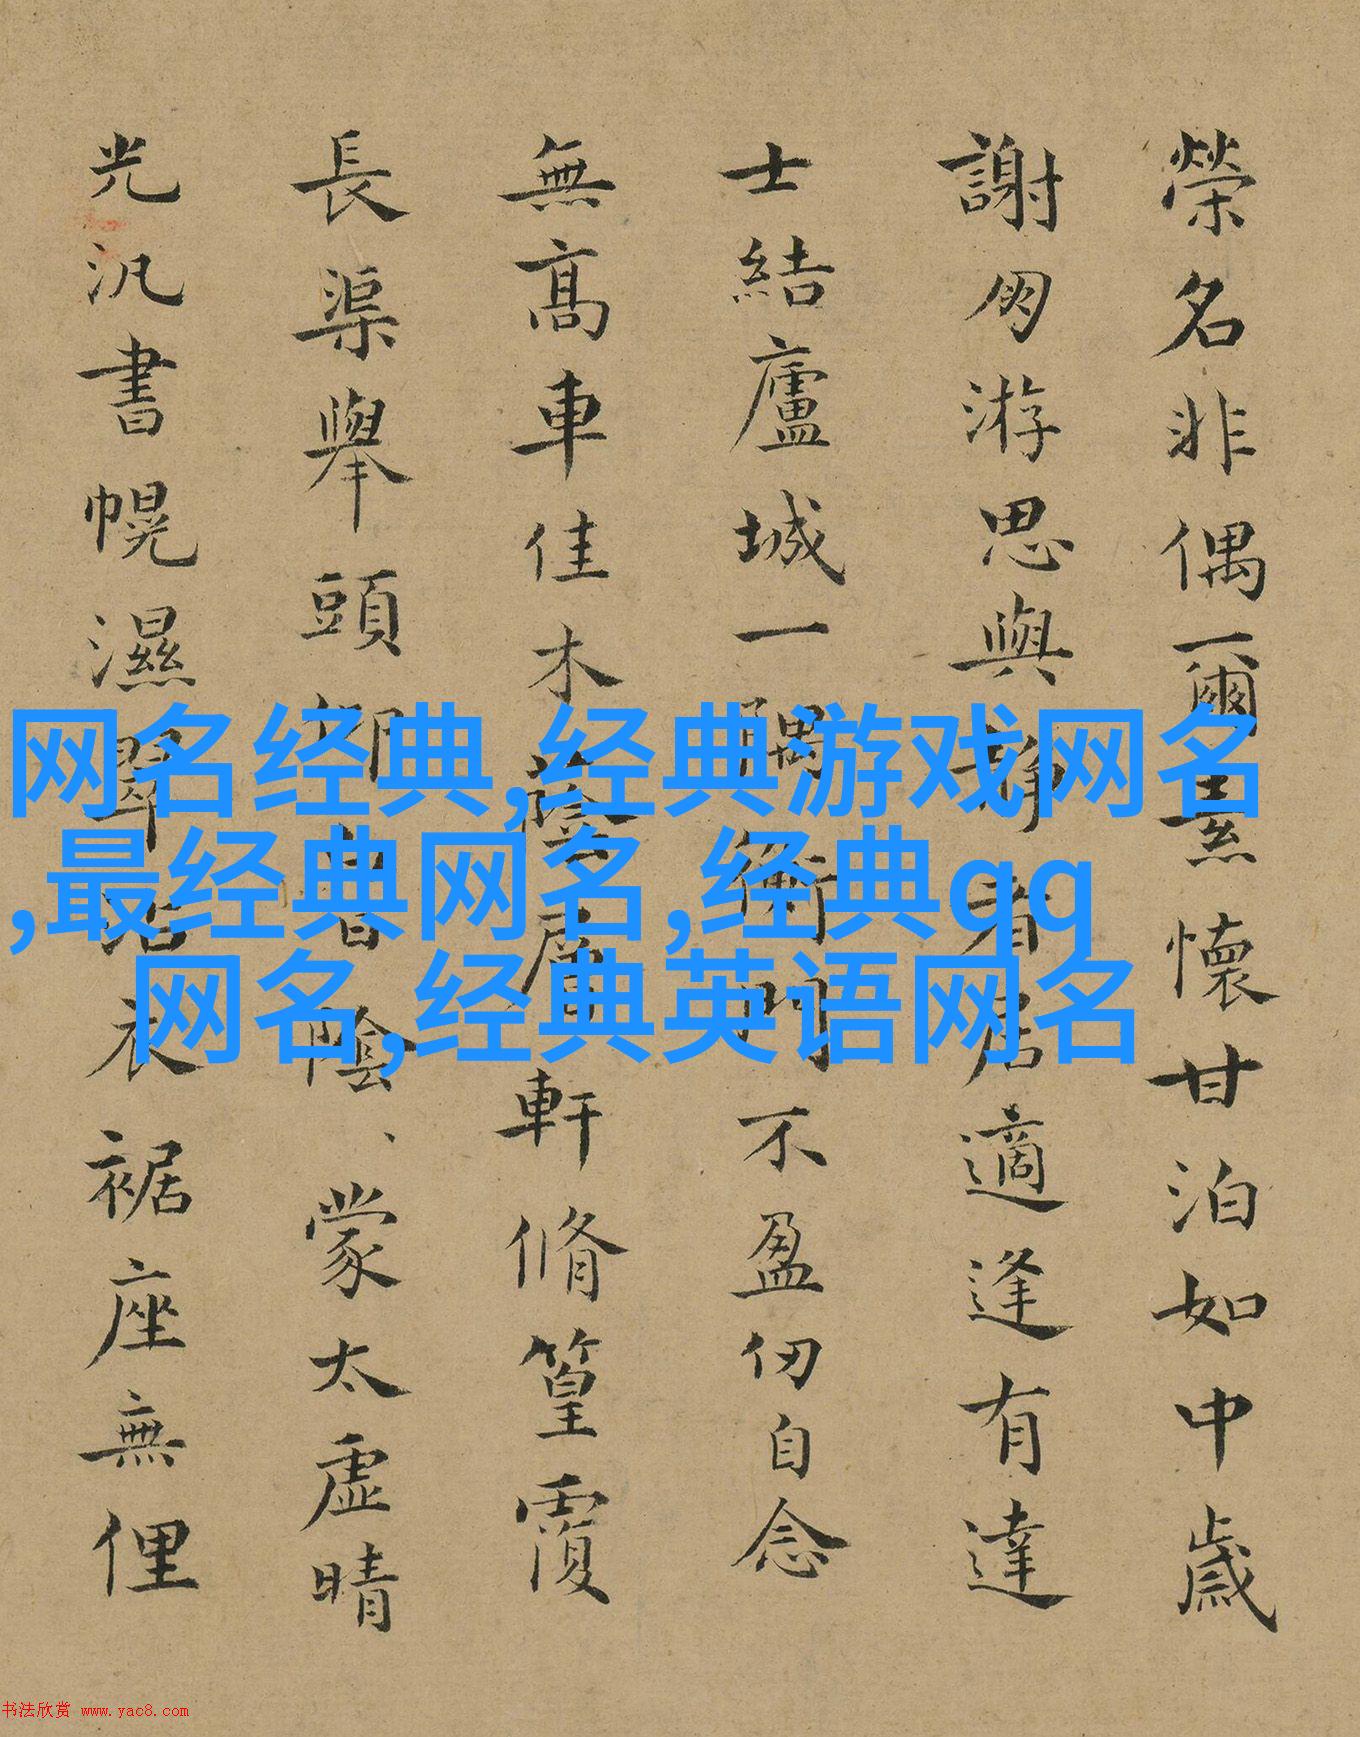 榮名非偶爾素懷甘泊如中歲
謝朋游思與靜者居適逢有達
士結廬城一隅衡門不盈仞自念
無高車佳木蔭層軒脩篁覆
長渠舉頭陰、蒙太虛晴
光汎書幌濕翠沾衣裾座無俚
网名经典,经典游戏网名
,最经典网名,经典qq
网名,经典英语网名
书法欣赏 www.yac8.com